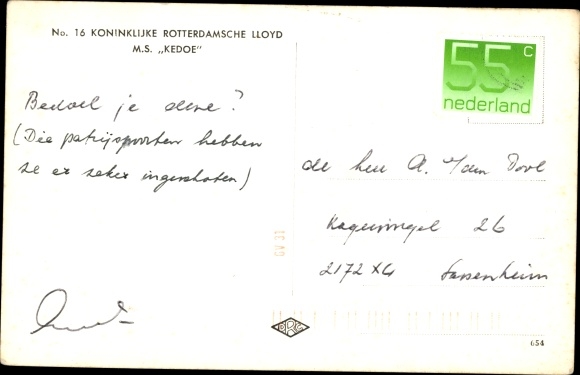 No. 16 KONINKLIJKE ROTTERDAMSCHE LLOYD
M.S. „KEDOE"
55 c
nederland
Bedoel je deze?
(Die patrijspoorten hebben
ze er zeker ingeschoten)
de heer A. van
26
2172 XG Sassenheim
654